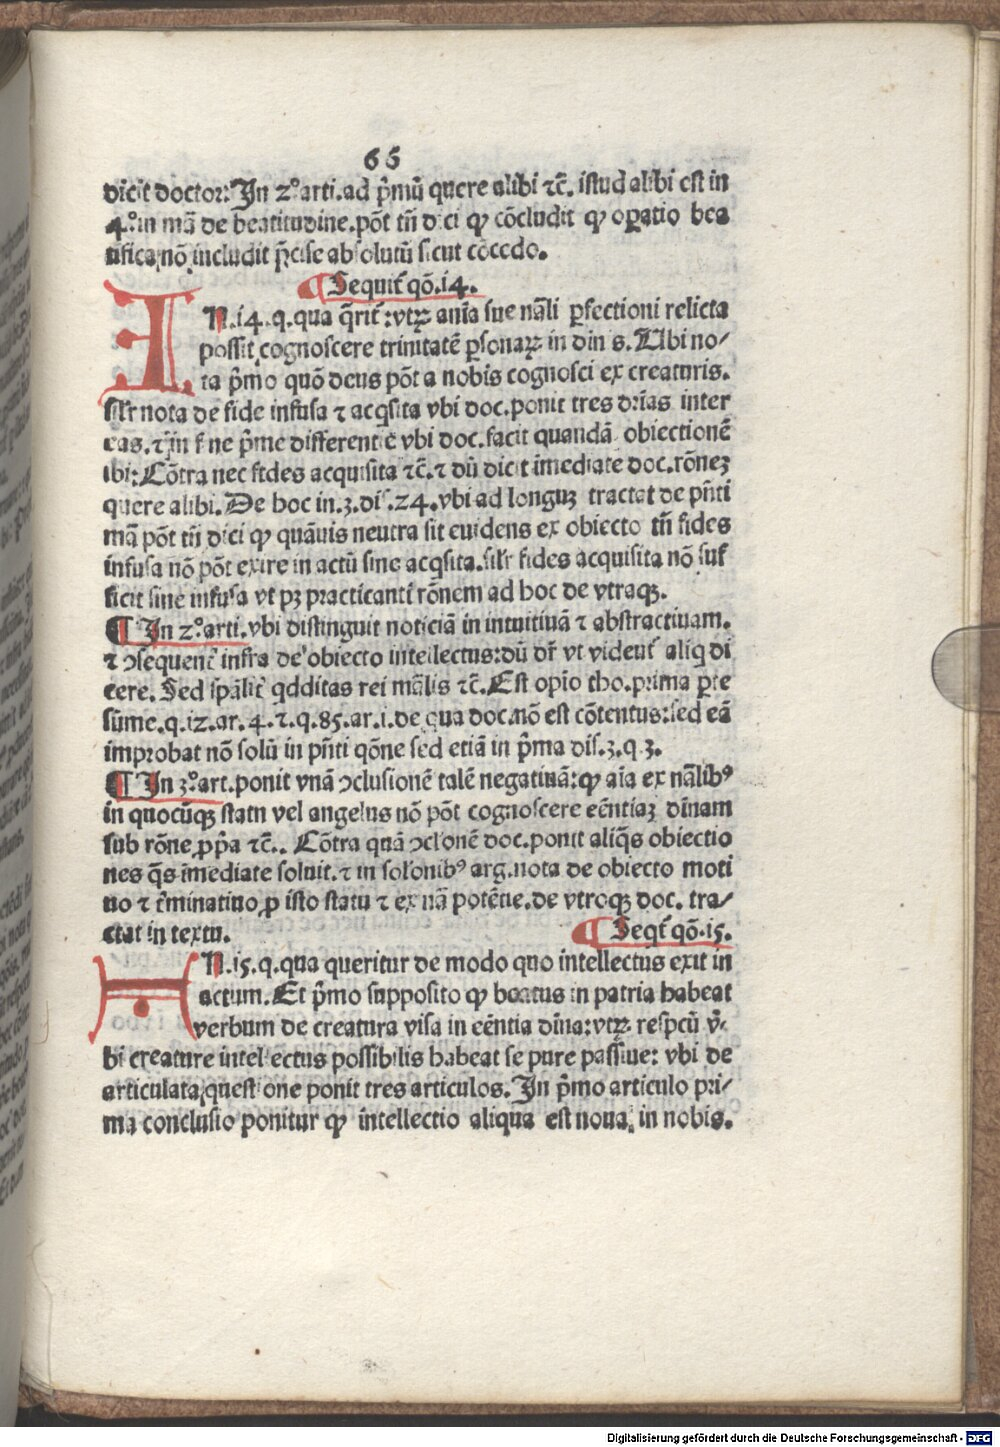 65
dicit doctor: In 2º arti. ad pͥmū quere alibi ⁊c̄. istud alibi est in
4.º in mā de beatitudine. pōt tn̄ dici ꝙ cōcludit ꝙ oꝑatio bea
tifica nō includit p̄cise absolutū sicut cōcedo.
¶ Sequit᷑ qō. 14.
IN. 14. q. qua q̄rit᷑: vtꝝ anīa sue nāli ꝑfectioni relicta
possit cognoscere trinitatē ꝑsonaꝝ in diuīs. Ubi no⸗
ta pͥmo quō deus pōt a nobis cognosci ex creaturis.
sil̄r nota de fide infusa ⁊ acq̄sita vbi doc. ponit tres dr̄ias inter
eas. ⁊ in fine pͥme differentie vbi doc. facit quandā obiectionē
ibi: Cōtra nec fides acquisita ⁊c̄. ⁊ dū dicit īmediate doc. rōneꝫ
quere alibi. De hoc in. 3. dis. 24. vbi ad longuꝫ tractat de pn̄ti
mā pōt tn̄ dici ꝙ quāuis neutra sit euidens ex obiecto tn̄ fides
infusa nō pōt exire in actū sine acq̄sita. sil̄r fides acquisita nō suf
ficit sine infusa vt pꝫ practicanti rōnem ad hoc de vtraqꝫ.
¶ In 2º arti. vbi distinguit noticiā in intuitiuā ⁊ abstractiuam.
⁊ ↄsequent᷑ infra de obiecto intellectus: dū dr̄ vt videt᷑ aliq̄ di
cere. Sed sp̄alit᷑ qd̄ditas rei māl̄is ⁊c̄. Est opīo tho. prima ꝑte
sūme. q. 12. ar. 4. ⁊. q. 85. ar. 1. de qua doc. nō est cōtentus: sed eā
improbat nō solū in pn̄ti qōne sed etiā in pͥma dis. 3. q. 3.
¶ In 3º art. ponit vnā ↄclusionē talē negatiuā: ꝙ aīa ex nālibꝰ
in quocūqꝫ statu vel angelus nō pōt cognoscere eēntiaꝫ diuīnam
sub rōne ꝓpͥa ⁊c̄.. Cōtra quā ↄclōnē doc. ponit aliq̄s obiectio
nes q̄s īmediate soluit. ⁊ in sol̄onibꝰ arg. nota de obiecto moti
uo ⁊ t᷑minatiuo ꝓ isto statu ⁊ ex nā potētie. de vtroqꝫ doc. tra⸗
ctat in textu.
¶ Seqt᷑ qō. 15.
IN. 15. q. qua queritur de modo quo intellectus exit in
actum. Et pͥmo supposito ꝙ beatus in patria habeat
verbum de creatura visa in eēntia diuīna: vtꝝ respcū v̄⸗
bi creature intellectus possibilis habeat se pure passiue: vbi de
articulata questione ponit tres articulos. In pͥmo articulo pri⸗
ma conclusio ponitur ꝙ intellectio aliqua est noua in nobis.
Digitalisierung gefördert durch die Deutsche Forschungsgemeinschaft - DFG